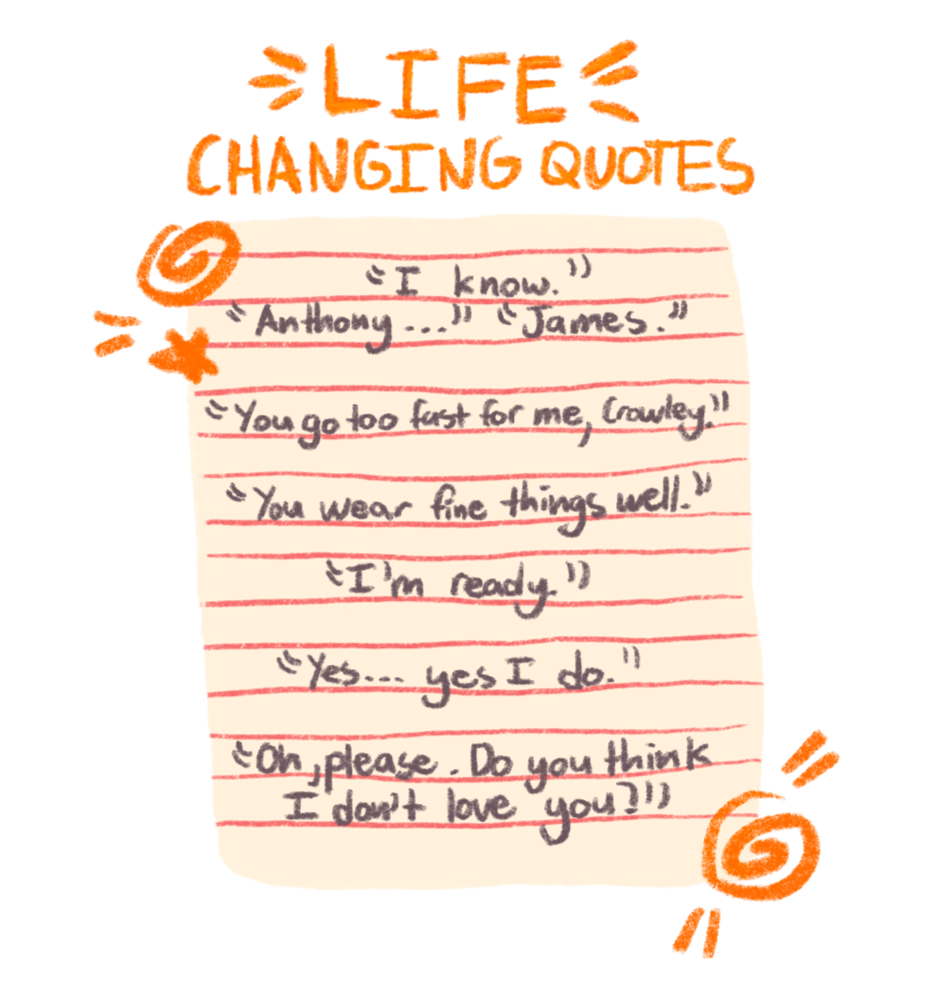 LIFE
CHANGING QUOTES
"I know."
"Anthony..." "James."
"You go too fast for me, Crowley."
"You wear fine things well."
"I'm ready."
"Yes... yes I do."
"Oh, please. Do you think
I don't love you?"